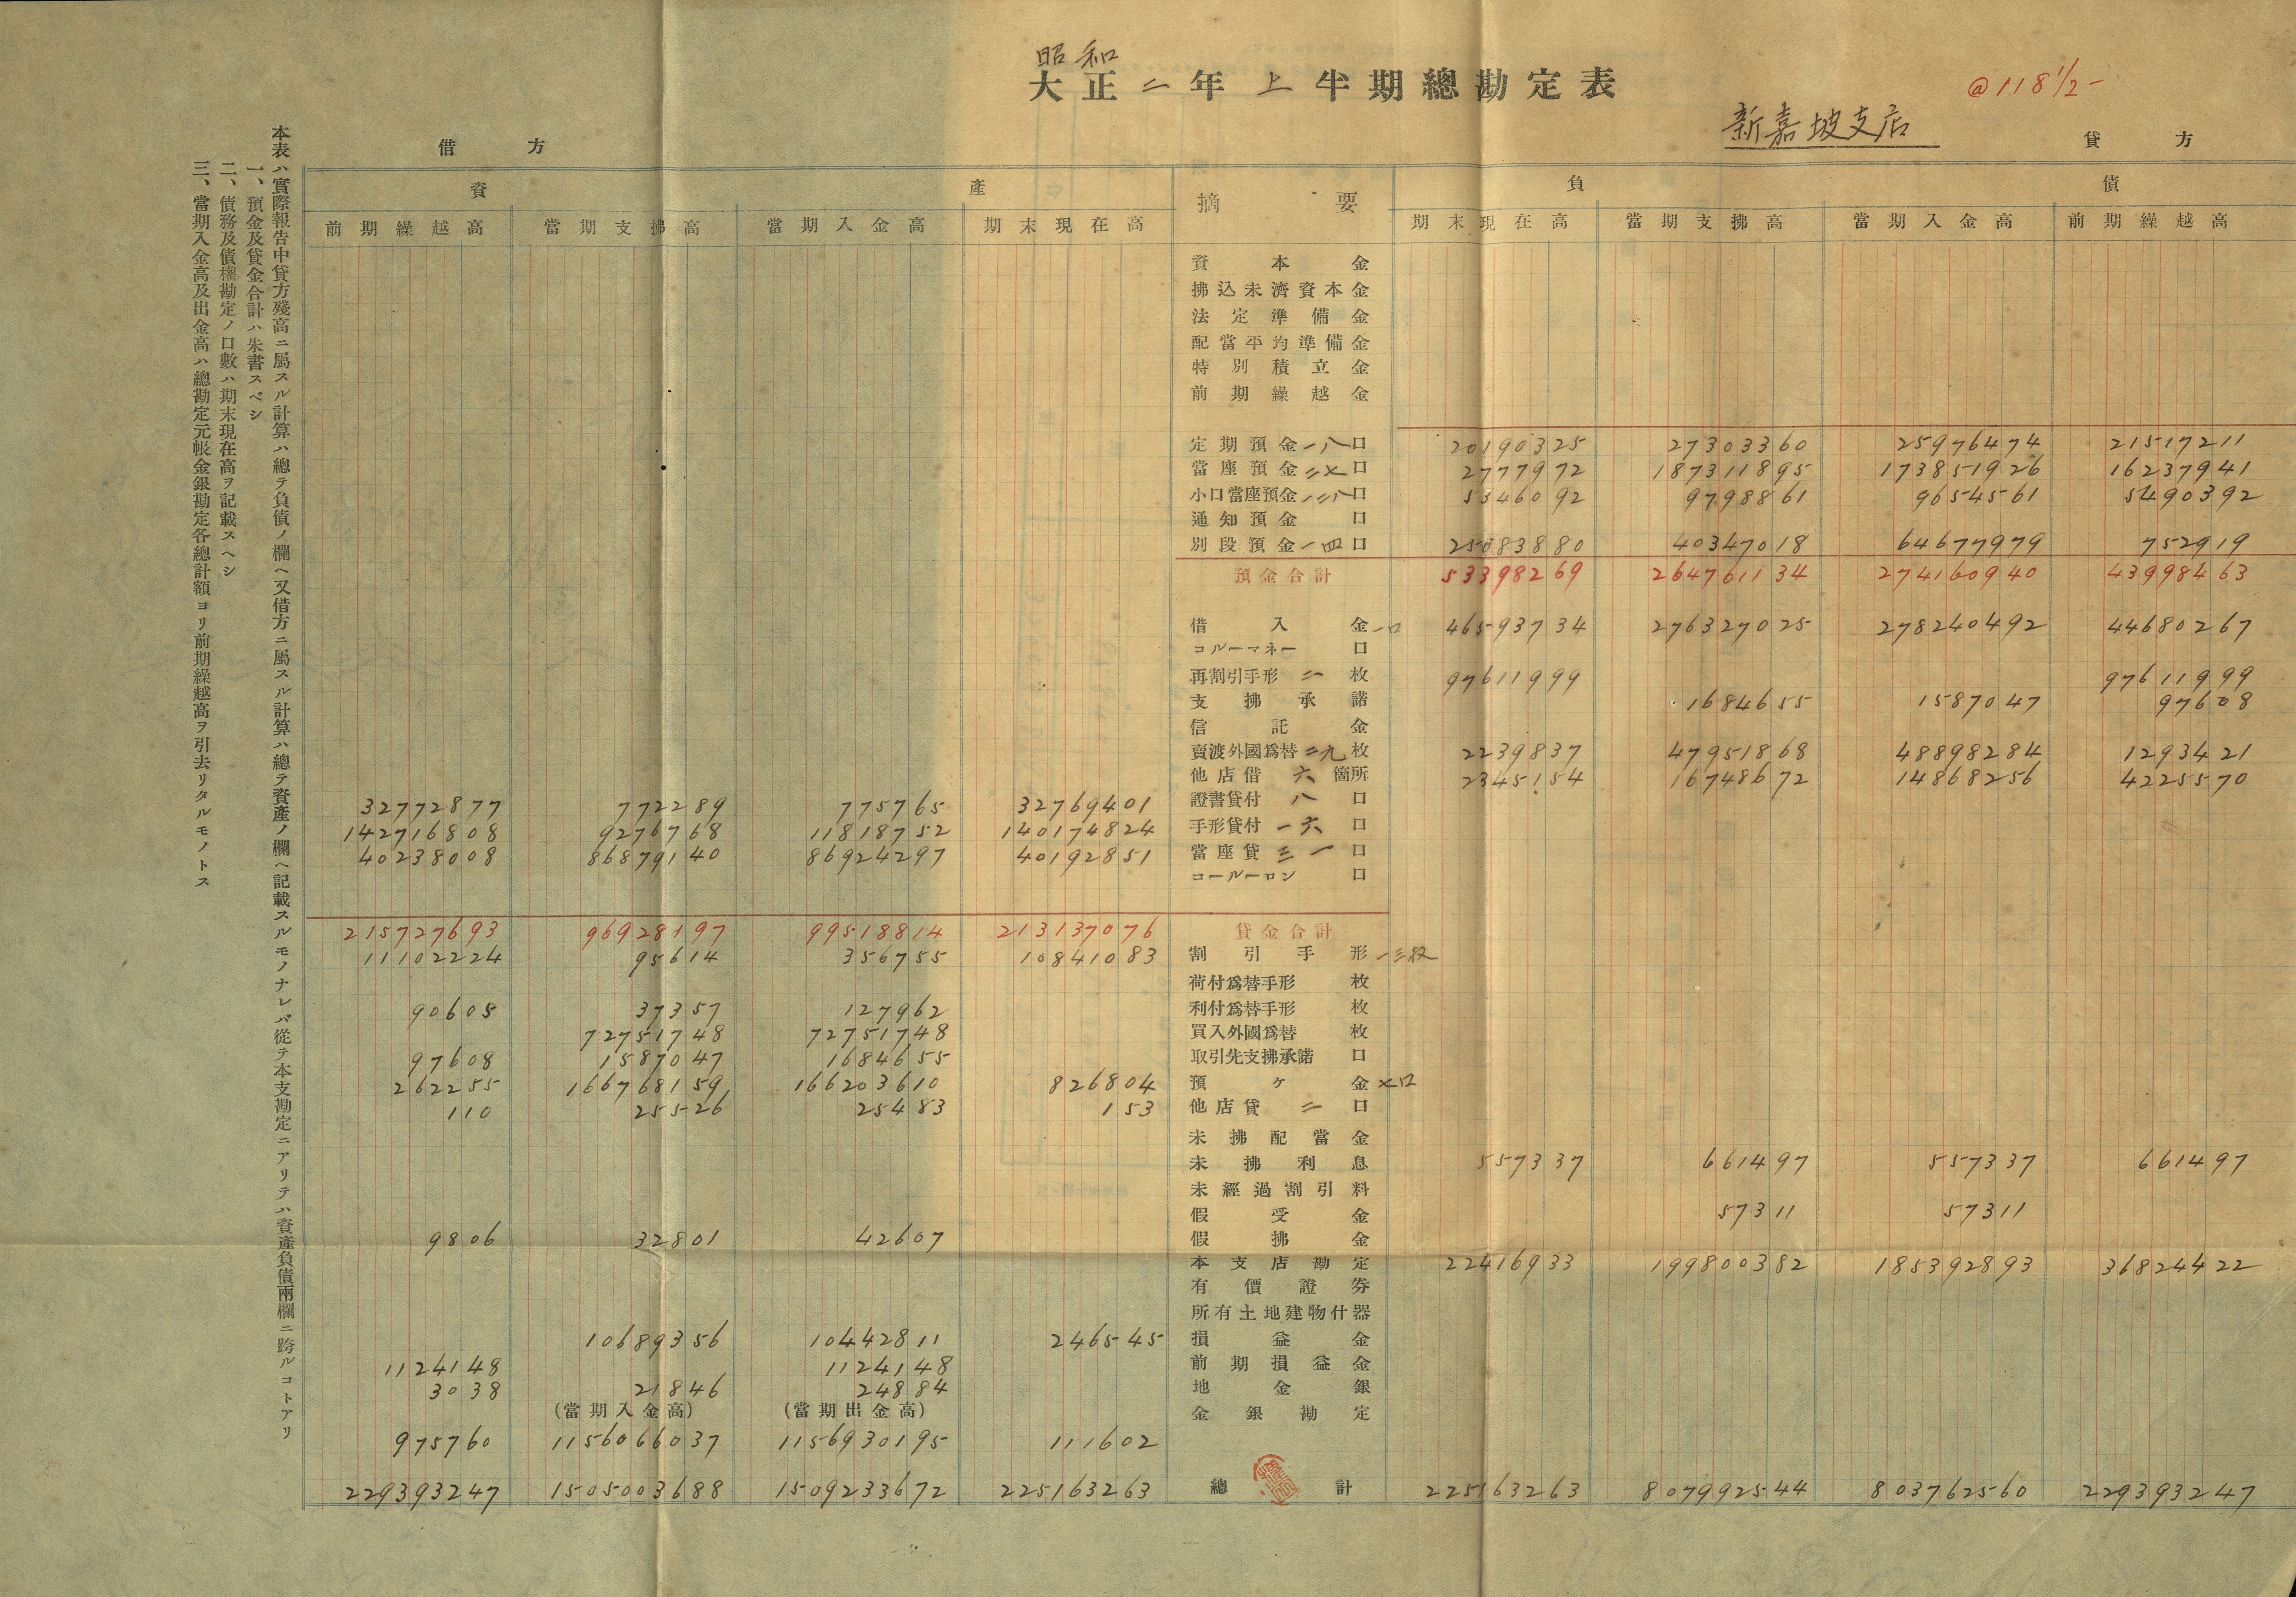 昭和
大正二年上半期總勘定表
@118½-
新嘉坡支店
借方
貸方
資產
摘要
負債
前期繰越高 當期支拂高 當期入金高 期末現在高 期末現在高 當期支拂高 當期入金高 前期繰越高
資本金
拂込未濟資本金
法定準備金
配當平均準備金
特別積立金
前期繰越金
定期預金一八口 20190325 27303360 25976474 21517211
當座預金二七口 2777972 187311895 173851926 16237941
小口當座預金一二八口 5346092 9798861 9654561 5490392
通知預金 口
別段預金一四口 25083880 40347018 64677979 752919
預金合計 53398269 264761134 274160940 43998463
借入金一口 46593734 276327025 278240492 44680267
コルーマネー 口
再割引手形 二 枚 97611999 97611999
支拂承諾 1684655 1587047 97608
信託金
賣渡外國爲替二九枚 2239837 47951868 48898284 1293421
他店借 六 箇所 2345154 16748672 14868256 4225570
32772877 772289 775765 32769401 證書貸付 八 口
142716808 9276768 11818752 140174824 手形貸付 一六 口
40238008 86879140 86924297 40192851 當座貸 三一 口
コールーロン 口
215727693 96928197 99518814 213137076 貸金合計
11102224 95614 356755 10841083 割引手形一三枚
荷付爲替手形 枚
90605 37357 127962 利付爲替手形 枚
72751748 72751748 買入外國爲替 枚
97608 1587047 1684655 取引先支拂承諾 口
262255 166768159 166203610 826804 預ケ金七口
110 25526 25483 153 他店貸 二 口
未拂配當金
未拂利息 557337 661497 557337 661497
未經過割引料
假受金 57311 57311
9806 32801 42607 假拂金
本支店勘定 22416933 199800382 185392893 36824422
有價證券
所有土地建物什器
10689356 10442811 246545 損益金
1124148 1124148 前期損益金
3038 21846 24884 地金銀
(當期入金高) (當期出金高) 金銀勘定
975760 1156066037 1156930195 111602
229393247 1505003688 1509233672 225163263 總計 225163263 807992544 803762560 229393247
本表ハ實際報告中貸方殘高ニ屬スル計算ハ總テ負債ノ欄ヘ又借方ニ屬スル計算ハ總テ資產ノ欄ヘ記載スルモノナレバ從テ本支勘定ニアリテハ資產負債兩欄ニ跨ルコトアリ
一、預金及貸金合計ハ朱書スベシ
二、債務及債權勘定ノ口數ハ期末現在高ヲ記載スヘシ
三、當期入金高及出金高ハ總勘定元帳金銀勘定各總計額ヨリ前期繰越高ヲ引去リタルモノトス